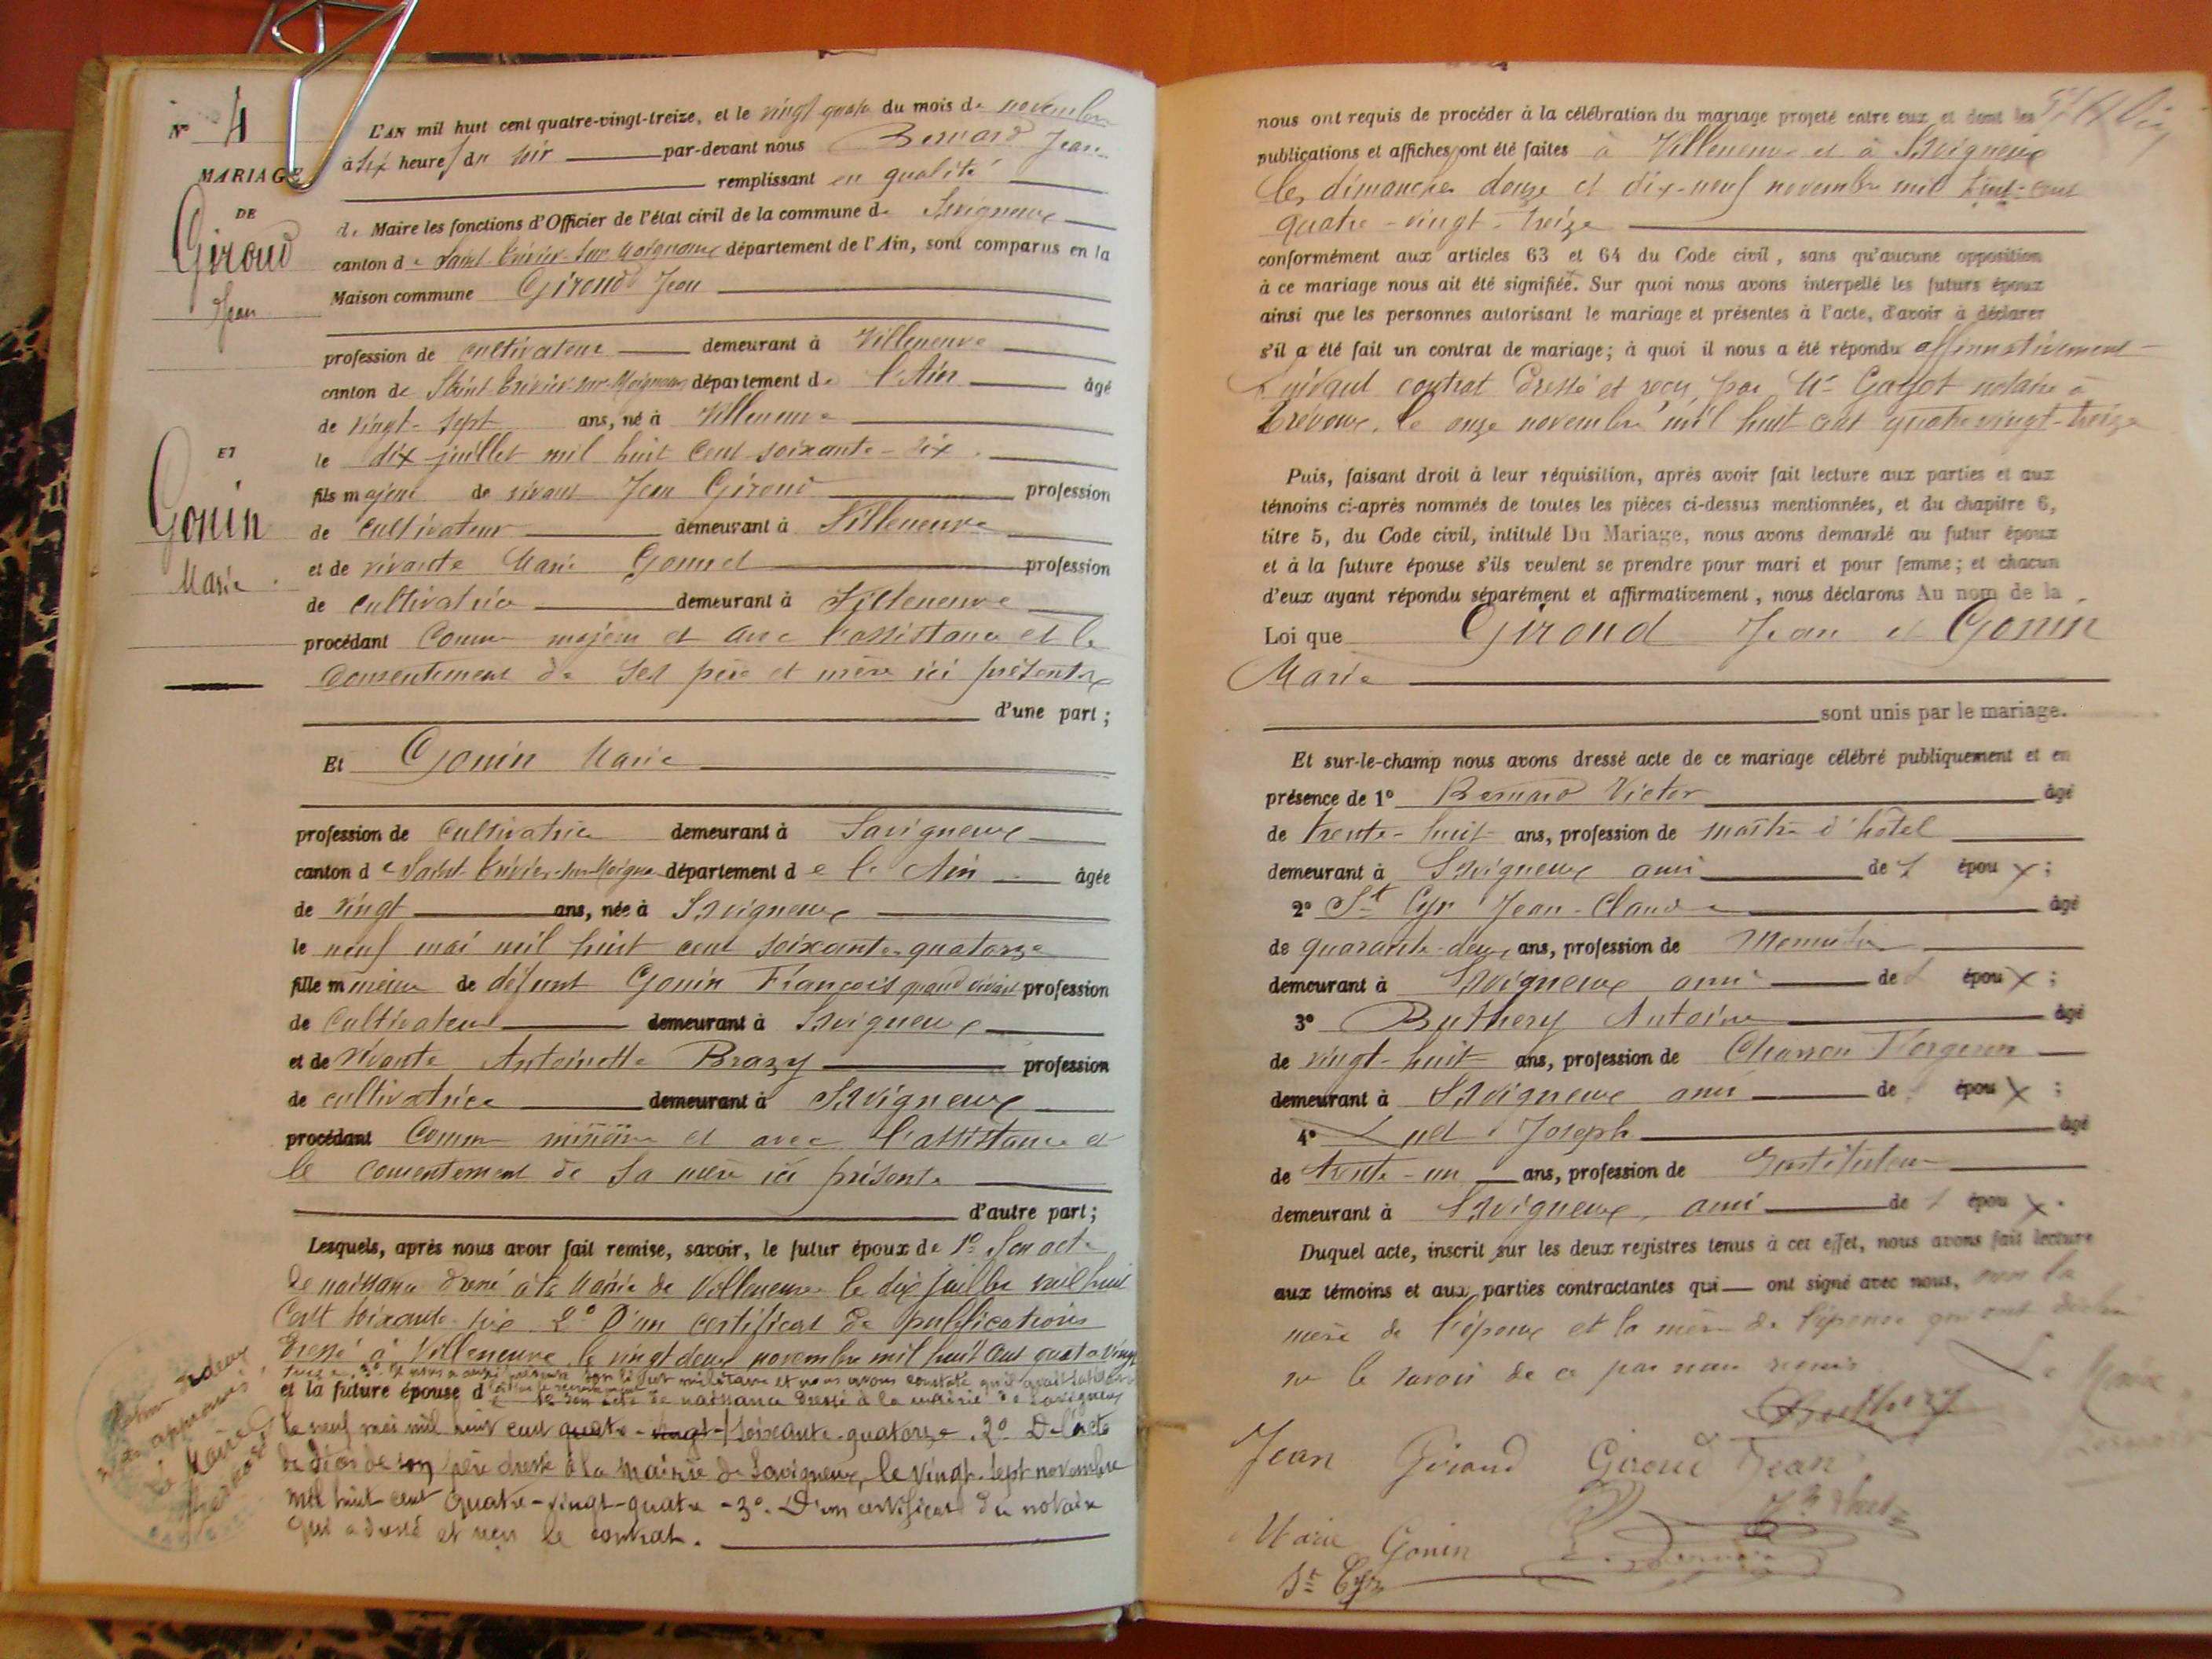 N° 4
MARIAGE
DE
Giroud
Jean
ET
Gonin
Marie
L'AN mil huit cent quatre-vingt-treize, et le vingt quatre du mois de novembre
à six heures du soir par-devant nous Bernard Jean
remplissant en qualité
de Maire les fonctions d'Officier de l'état civil de la commune de Savigneux
canton de Saint Trivier-sur-Moignans département de l'Ain, sont comparus en la
Maison commune Giroud Jean
profession de cultivateur demeurant à Villeneuve
canton de Saint Trivier-sur-Moignans département de l'Ain âgé
de vingt-sept ans, né à Villeneuve
le dix juillet mil huit cent soixante-six
fils majeur de vivant Jean Giroud profession
de cultivateur demeurant à Villeneuve
et de vivante Marie Gonnet profession
de cultivatrice demeurant à Villeneuve
procédant comme majeur et avec l'assistance et le
consentement de ses père et mère ici présents
d'une part ;
Et Gonin Marie
profession de cultivatrice demeurant à Savigneux
canton de Saint Trivier-sur-Moignans département de l'Ain âgée
de vingt ans, née à Savigneux
le neuf mai mil huit cent soixante-quatorze
fille mineure de défunt Gonin François quand vivait profession
de cultivateur demeurant à Savigneux
et de vivante Antoinette Brazy profession
de cultivatrice demeurant à Savigneux
procédant comme mineure et avec l'assistance et
le consentement de sa mère ici présente
d'autre part ;
Lesquels, après nous avoir fait remise, savoir, le futur époux de 1° Son acte
de naissance dressé à la Mairie de Villeneuve le dix juillet mil huit
cent soixante-six 2° D'un certificat de publications
dressé à Villeneuve le vingt deux novembre mil huit cent quatre vingt
treize, 3° Il nous a aussi présenté son livret militaire et nous avons constaté qu'il avait
et la future épouse de son acte de naissance dressé à la mairie de Savigneux
le neuf mai mil huit cent quatre-vingt-soixante-quatorze. 2° De l'acte
de décès de son père dressé à la mairie de Savigneux, le vingt-sept novembre
mil huit cent quatre-vingt-quatre - 3°. D'un certificat du notaire
qui a dressé et reçu le contrat.
approuvé
Le Maire
Bernard
nous ont requis de procéder à la célébration du mariage projeté entre eux et dont les
publications et affiches ont été faites à Villeneuve et à Savigneux
les dimanches douze et dix-neuf novembre mil huit-cent
quatre-vingt-treize
conformément aux articles 63 et 64 du Code civil, sans qu'aucune opposition
à ce mariage nous ait été signifiée. Sur quoi nous avons interpellé les futurs époux
ainsi que les personnes autorisant le mariage et présentes à l'acte, d'avoir à déclarer
s'il a été fait un contrat de mariage ; à quoi il nous a été répondu affirmativement
suivant contrat dressé et reçu par Me Gayot notaire à
Trévoux, le onze novembre mil huit cent quatre vingt-treize
Puis, faisant droit à leur réquisition, après avoir fait lecture aux parties et aux
témoins ci-après nommés de toutes les pièces ci-dessus mentionnées, et du chapitre 6,
titre 5, du Code civil, intitulé Du Mariage, nous avons demandé au futur époux
et à la future épouse s'ils veulent se prendre pour mari et pour femme ; et chacun
d'eux ayant répondu séparément et affirmativement, nous déclarons Au nom de la
Loi que Giroud Jean et Gonin
Marie
sont unis par le mariage.
Et sur-le-champ nous avons dressé acte de ce mariage célébré publiquement et en
présence de 1° Bernard Victor âgé
de trente-huit ans, profession de maître d'hôtel
demeurant à Savigneux ami de l époux ;
2° St Cyr Jean-Claude âgé
de quarante-deux ans, profession de Menuisier
demeurant à Savigneux ami de l époux ;
3° Buthery Antoine âgé
de vingt-huit ans, profession de Charron Forgeron
demeurant à Savigneux ami de époux ;
4° Joseph âgé
de trente-un ans, profession de Instituteur
demeurant à Savigneux, ami de l époux.
Duquel acte, inscrit sur les deux registres tenus à cet effet, nous avons fait lecture
aux témoins et aux parties contractantes qui ont signé avec nous, non la
mère de l'époux et la mère de l'épouse qui ont déclaré
ne le savoir de ce par nous requis
Le Maire
Buthery
Jean Giroud Giroud Jean
Marie Gonin
St Cyr